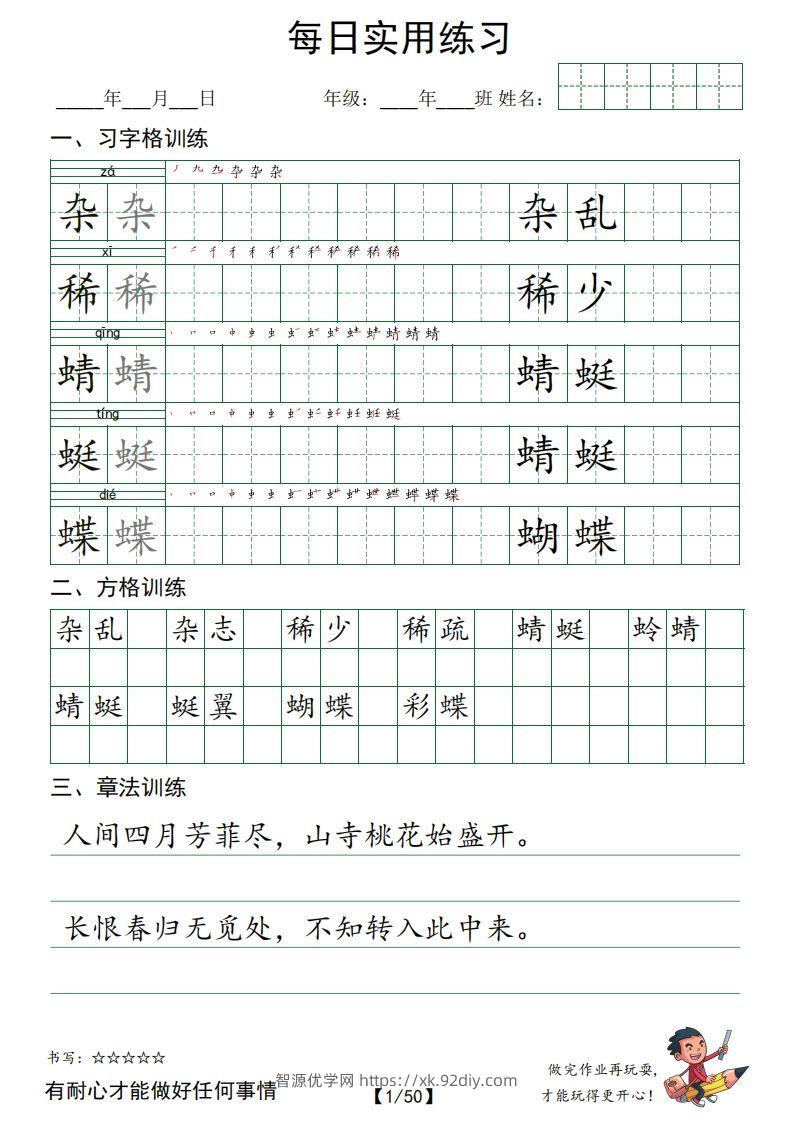 每日实用练习
_____年___月___日 年级：____年____班 姓名：
一、习字格训练
zá
杂 杂 杂 乱
xī
稀 稀 稀 少
qīng
蜻 蜻 蜻 蜓
tíng
蜓 蜓 蜻 蜓
dié
蝶 蝶 蝴 蝶
二、方格训练
杂 乱 杂 志 稀 少 稀 疏 蜻 蜓 蛉 蜻
蜻 蜓 蜓 翼 蝴 蝶 彩 蝶
三、章法训练
人间四月芳菲尽，山寺桃花始盛开。
长恨春归无觅处，不知转入此中来。
书写：☆☆☆☆☆
有耐心才能做好任何事情
智源优学网 https://xk.92diy.com
【1/50】
做完作业再玩耍，
才能玩得更开心！